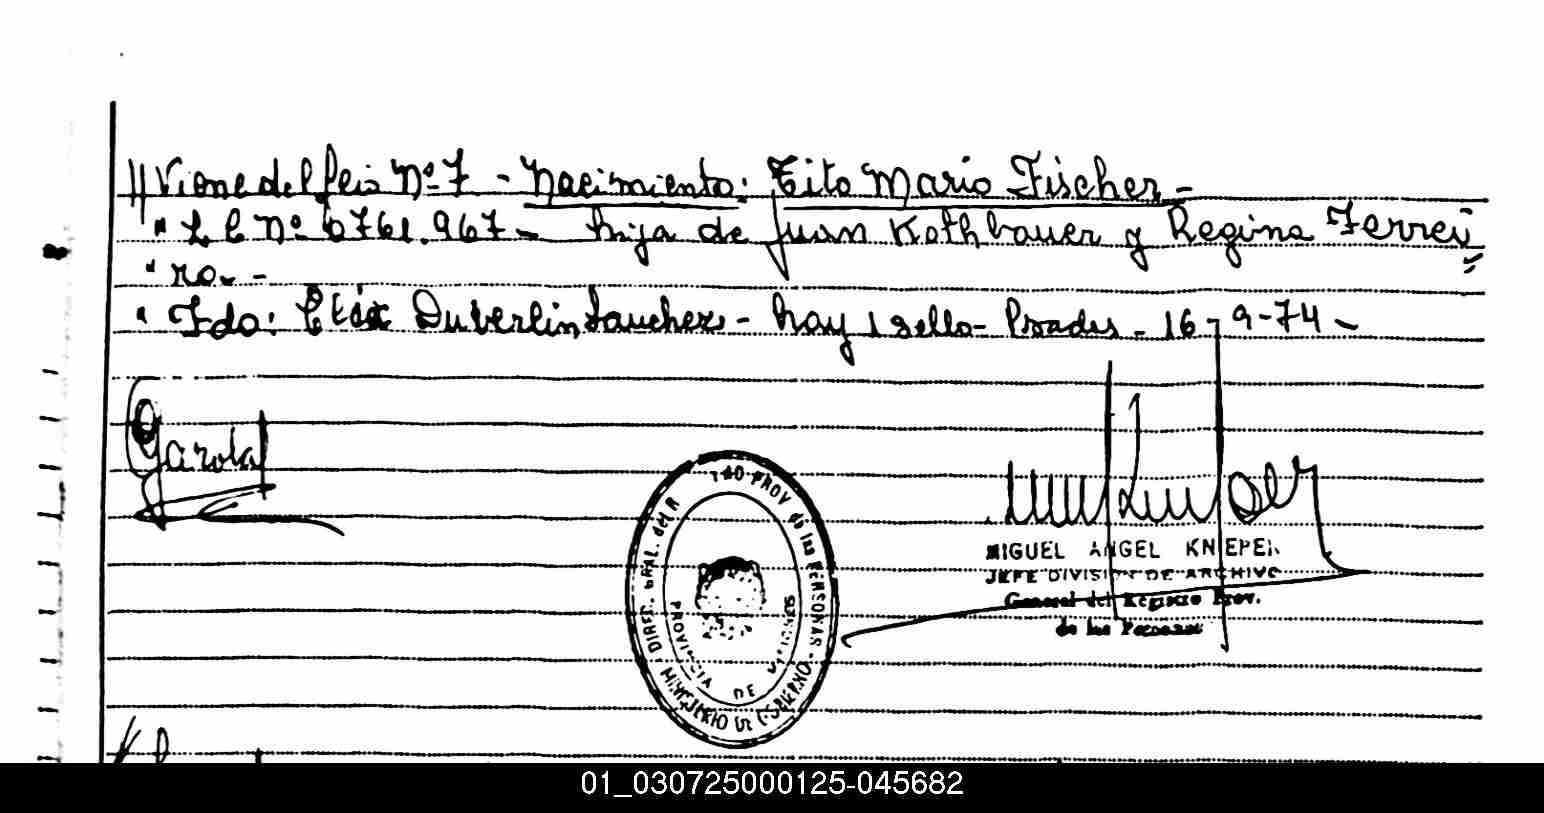 // Viene del folio Nº 7 - Nacimiento: Tito Mario Fischer -
" L C Nº 6761.967 - hija de Juan Kothbauer y Regina Ferrei=
" ro. -
" Fdo: Duberlin Sanchez - hay 1 sello - Prades - 16-9-74 -
MIGUEL ANGEL KNIEPER
JEFE DIVISION DE ARCHIVO
General del Registro Prov.
de las Personas
DIREC. GRAL. del R PROV de las PERSONAS - MINISTERIO DE GOBIERNO
PROVINCIA DE MISIONES
01_030725000125-045682